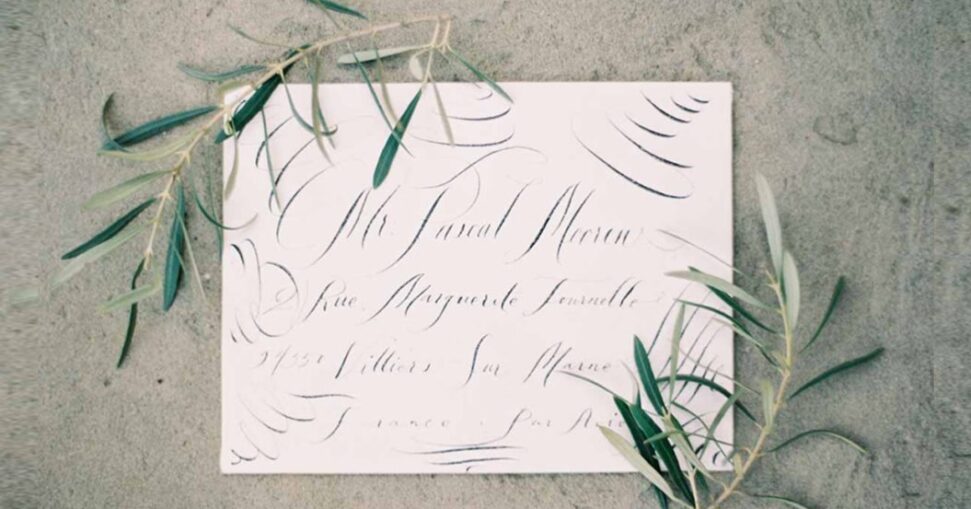 Mr. Pascal Meeren
2 Rue Marguerite Tournelle
94350 Villiers Sur Marne
France Par Avion